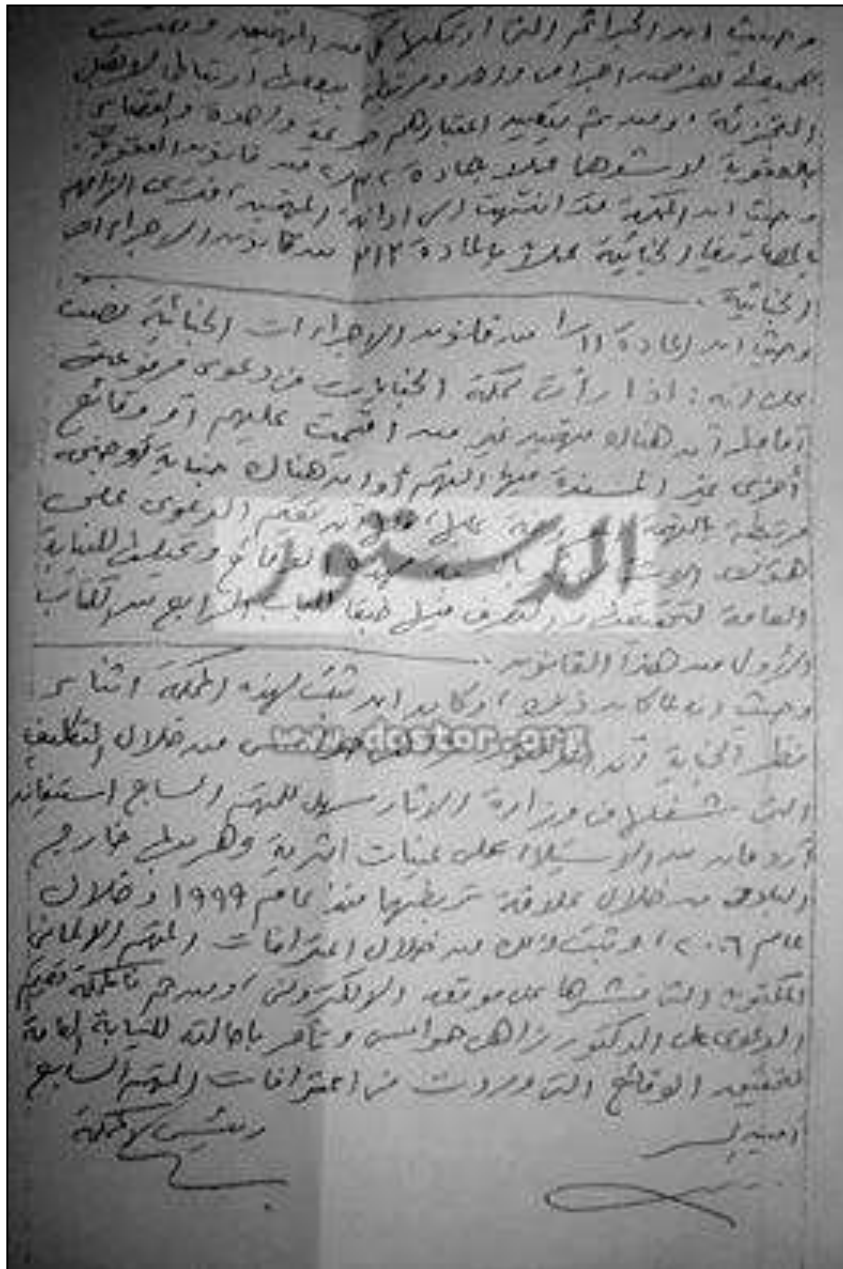 وحيث ان الجرائم التى ارتكبها كل من المتهمين وقعت
جميعها لغرض اجرامى واحد ومرتبطة ببعضها ارتباطا لا يقبل
التجزئة، ومن ثم يتعين اعتبارهم جريمة واحدة والقضاء
بالعقوبة لاشدها عملا بمادة ٣٢ من قانون العقوبات.
وحيث ان المحكمة قد انتهت الى ادانة المتهمين، فترى الزامهم
بالمصاريف الجنائية عملا بالمادة ٣١٣ من قانون الاجراءات
الجنائية.
وحيث ان المادة ١١/١ من قانون الاجراءات الجنائية نصت
على انه: اذا رأت محكمة الجنايات فى دعوى مرفوعة
أمامها أن هناك متهمين غير من اقيمت عليهم أو وقائع
أخرى غير المسندة فيها اليهم أو ان هناك جناية أو جنحة
مرتبطة بالتهمة المعروضة عليها، فلها أن تقيم الدعوى على
هؤلاء الاشخاص أو بالنسبة لهذه الوقائع وتحيلها للنيابة
العامة لتحقيقها والتصرف فيها طبقا للباب الرابع من الكتاب
الأول من هذا القانون.
وحيث انه لما كان ذلك، وكان ان ثبت لهذه المحكمة اثناء
نظر الجناية أن الدكتور زاهى حواس من خلال التكليف
التى شغلها فى وزارة الاثار سهل للمتهم السابع استيفان
أردمان من الاستيلاء على عينات اثرية وهربها خارج
البلاد من خلال علاقة تربطهما منذ عام ١٩٩٩ وخلال
عام ٢٠٠٦، وثبت ذلك من خلال اعترافات المتهم الالمانى
المكتوبة التى نشرها على موقعه الالكترونى، ومن ثم فالمحكمة تقيم
الدعوى على الدكتور زاهى حواس وتأمر باحالته للنيابة العامة
لتحقيق الوقائع التى وردت فى اعترافات المتهم السابع
أمين السر
رئيس المحكمة
الدستور
www.dostor.org